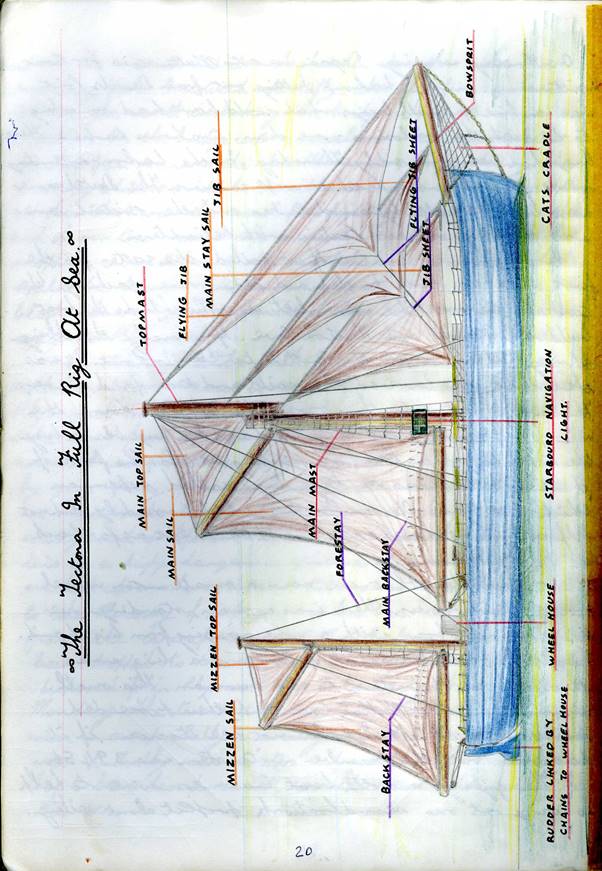 The Tectona In Full Rig At Sea
TOPMAST
FLYING JIB
MAIN STAY SAIL
JIB SAIL
FLYING JIB SHEET
JIB SHEET
BOWSPRIT
CATS CRADLE
MAIN TOP SAIL
MAINSAIL
MAIN MAST
FORESTAY
MAIN BACKSTAY
STARBOURD NAVIGATION
LIGHT.
MIZZEN TOP SAIL
MIZZEN SAIL
BACKSTAY
WHEEL HOUSE
RUDDER LINKED BY
CHAINS TO WHEEL HOUSE
20